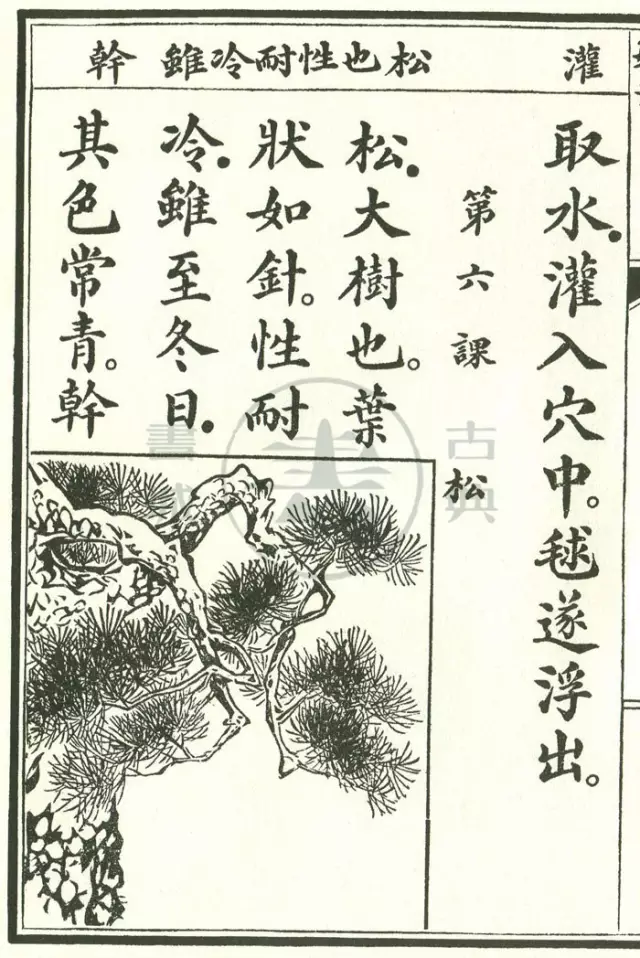 灌 松 也 性 耐 冷 雖 幹
取水.灌入穴中。毬遂浮出。
第六課 松
松.大樹也。葉
狀如針。性耐
冷.雖至冬日.
其色常青。幹
古典